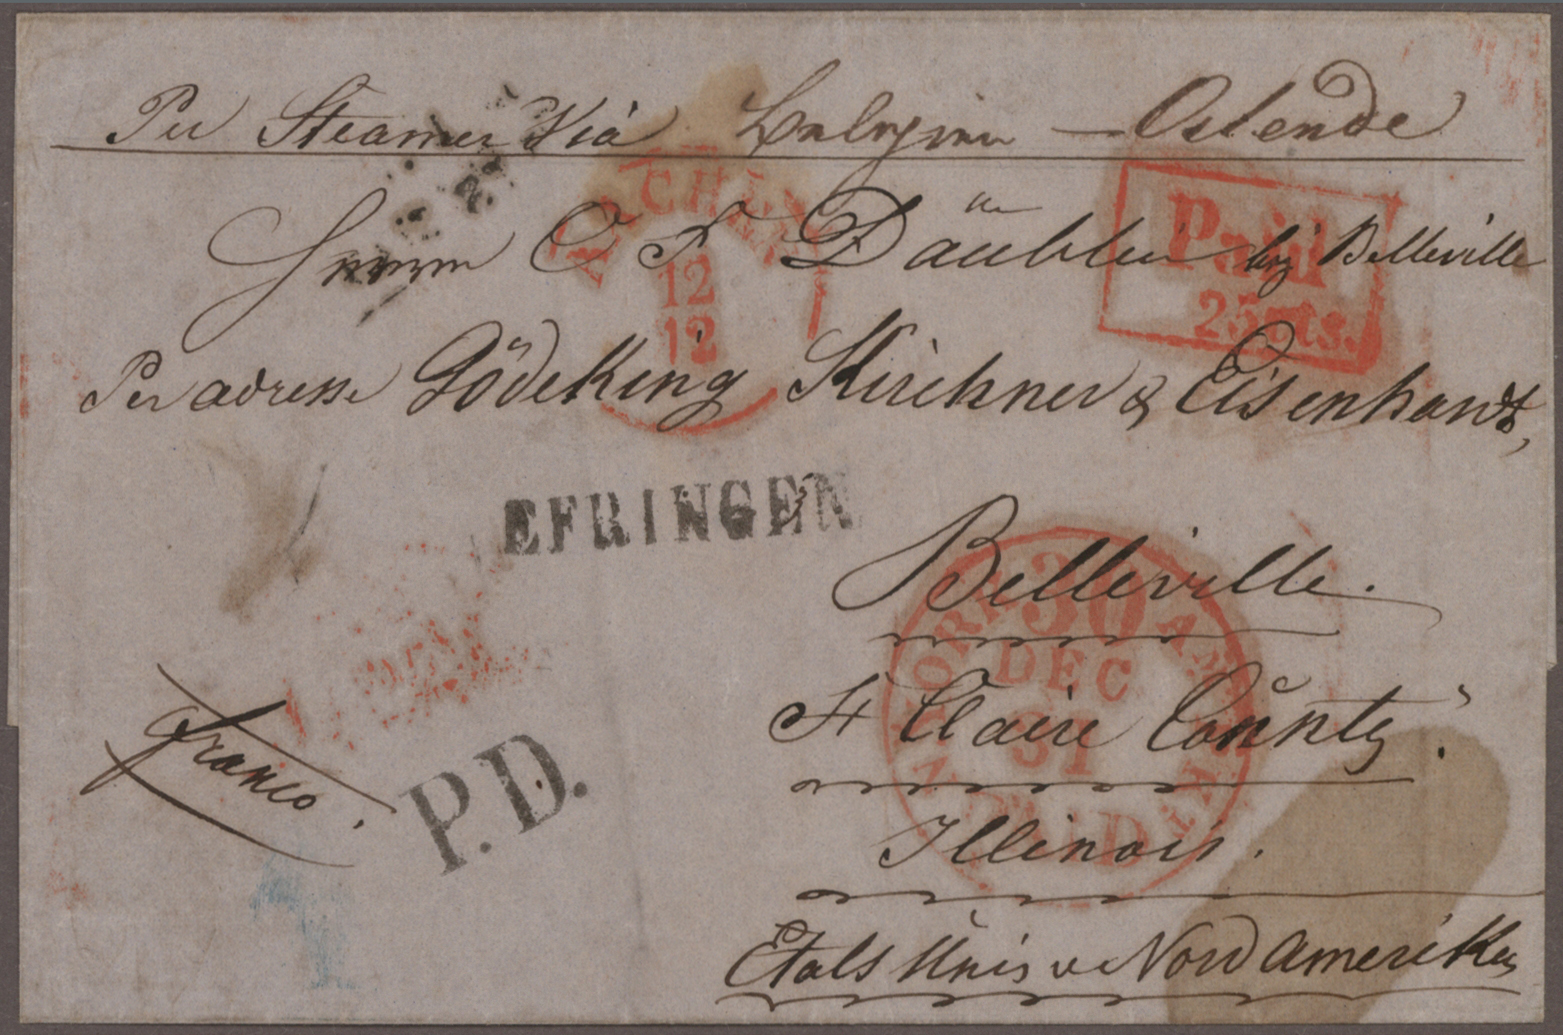 Per Steamer Via Belgien — Ostende
AACHEN
12
12
Paid
25 cts.
Herrn C F Däublin bey Belleville
Per adresse Gödeking Kirchner & Eisenhardt,
EFRINGEN
Belleville.
N. YORK AM. PKT.
30
DEC
31
PAID
St Claire County.
Franco.
P.D.
Illinois.
Etats Unis v Nord Amerika